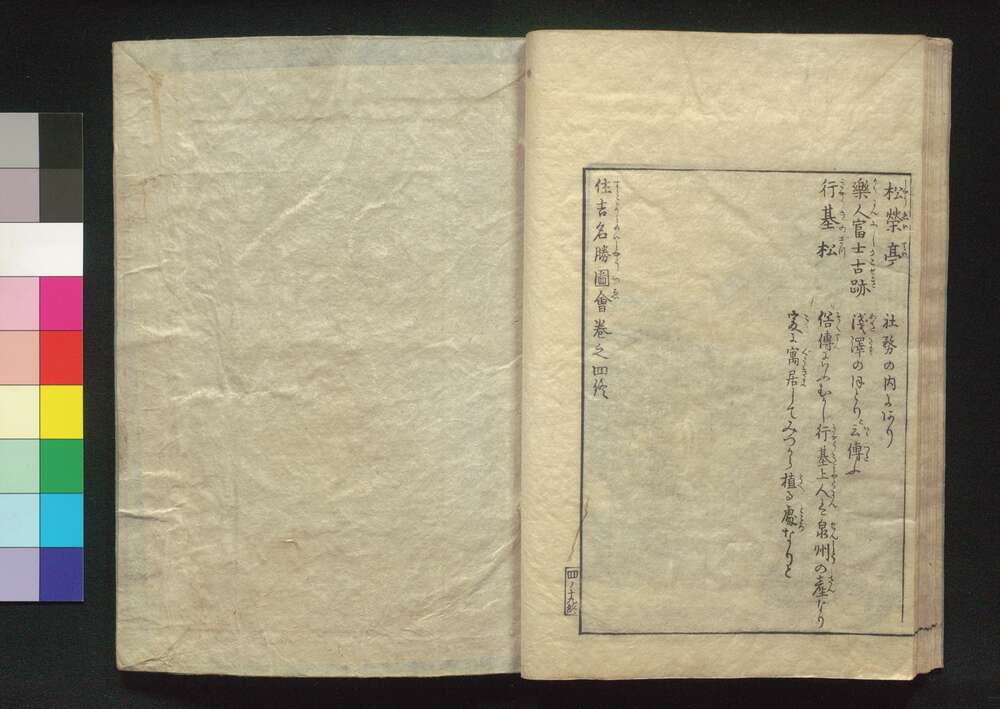 松榮亭　社務の内にあり
樂人富士古跡　浅澤のほとり云傳ふ
行基松　俗傳にいふむかし行基上人ハ泉州の産なり
爰に寓居してみつから植る處なりと
住吉名勝圖會巻之四終
四ノ十九終